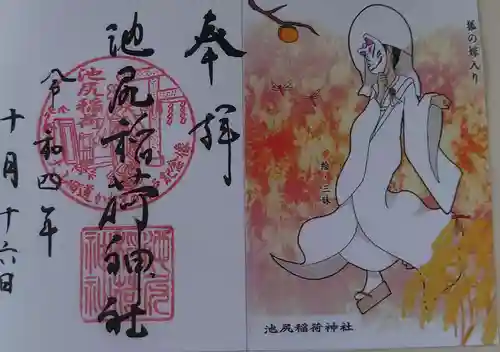 奉拝
池尻稲荷神社
令和四年
十月十六日
池尻稲荷
狐の嫁入り
池尻稲荷神社